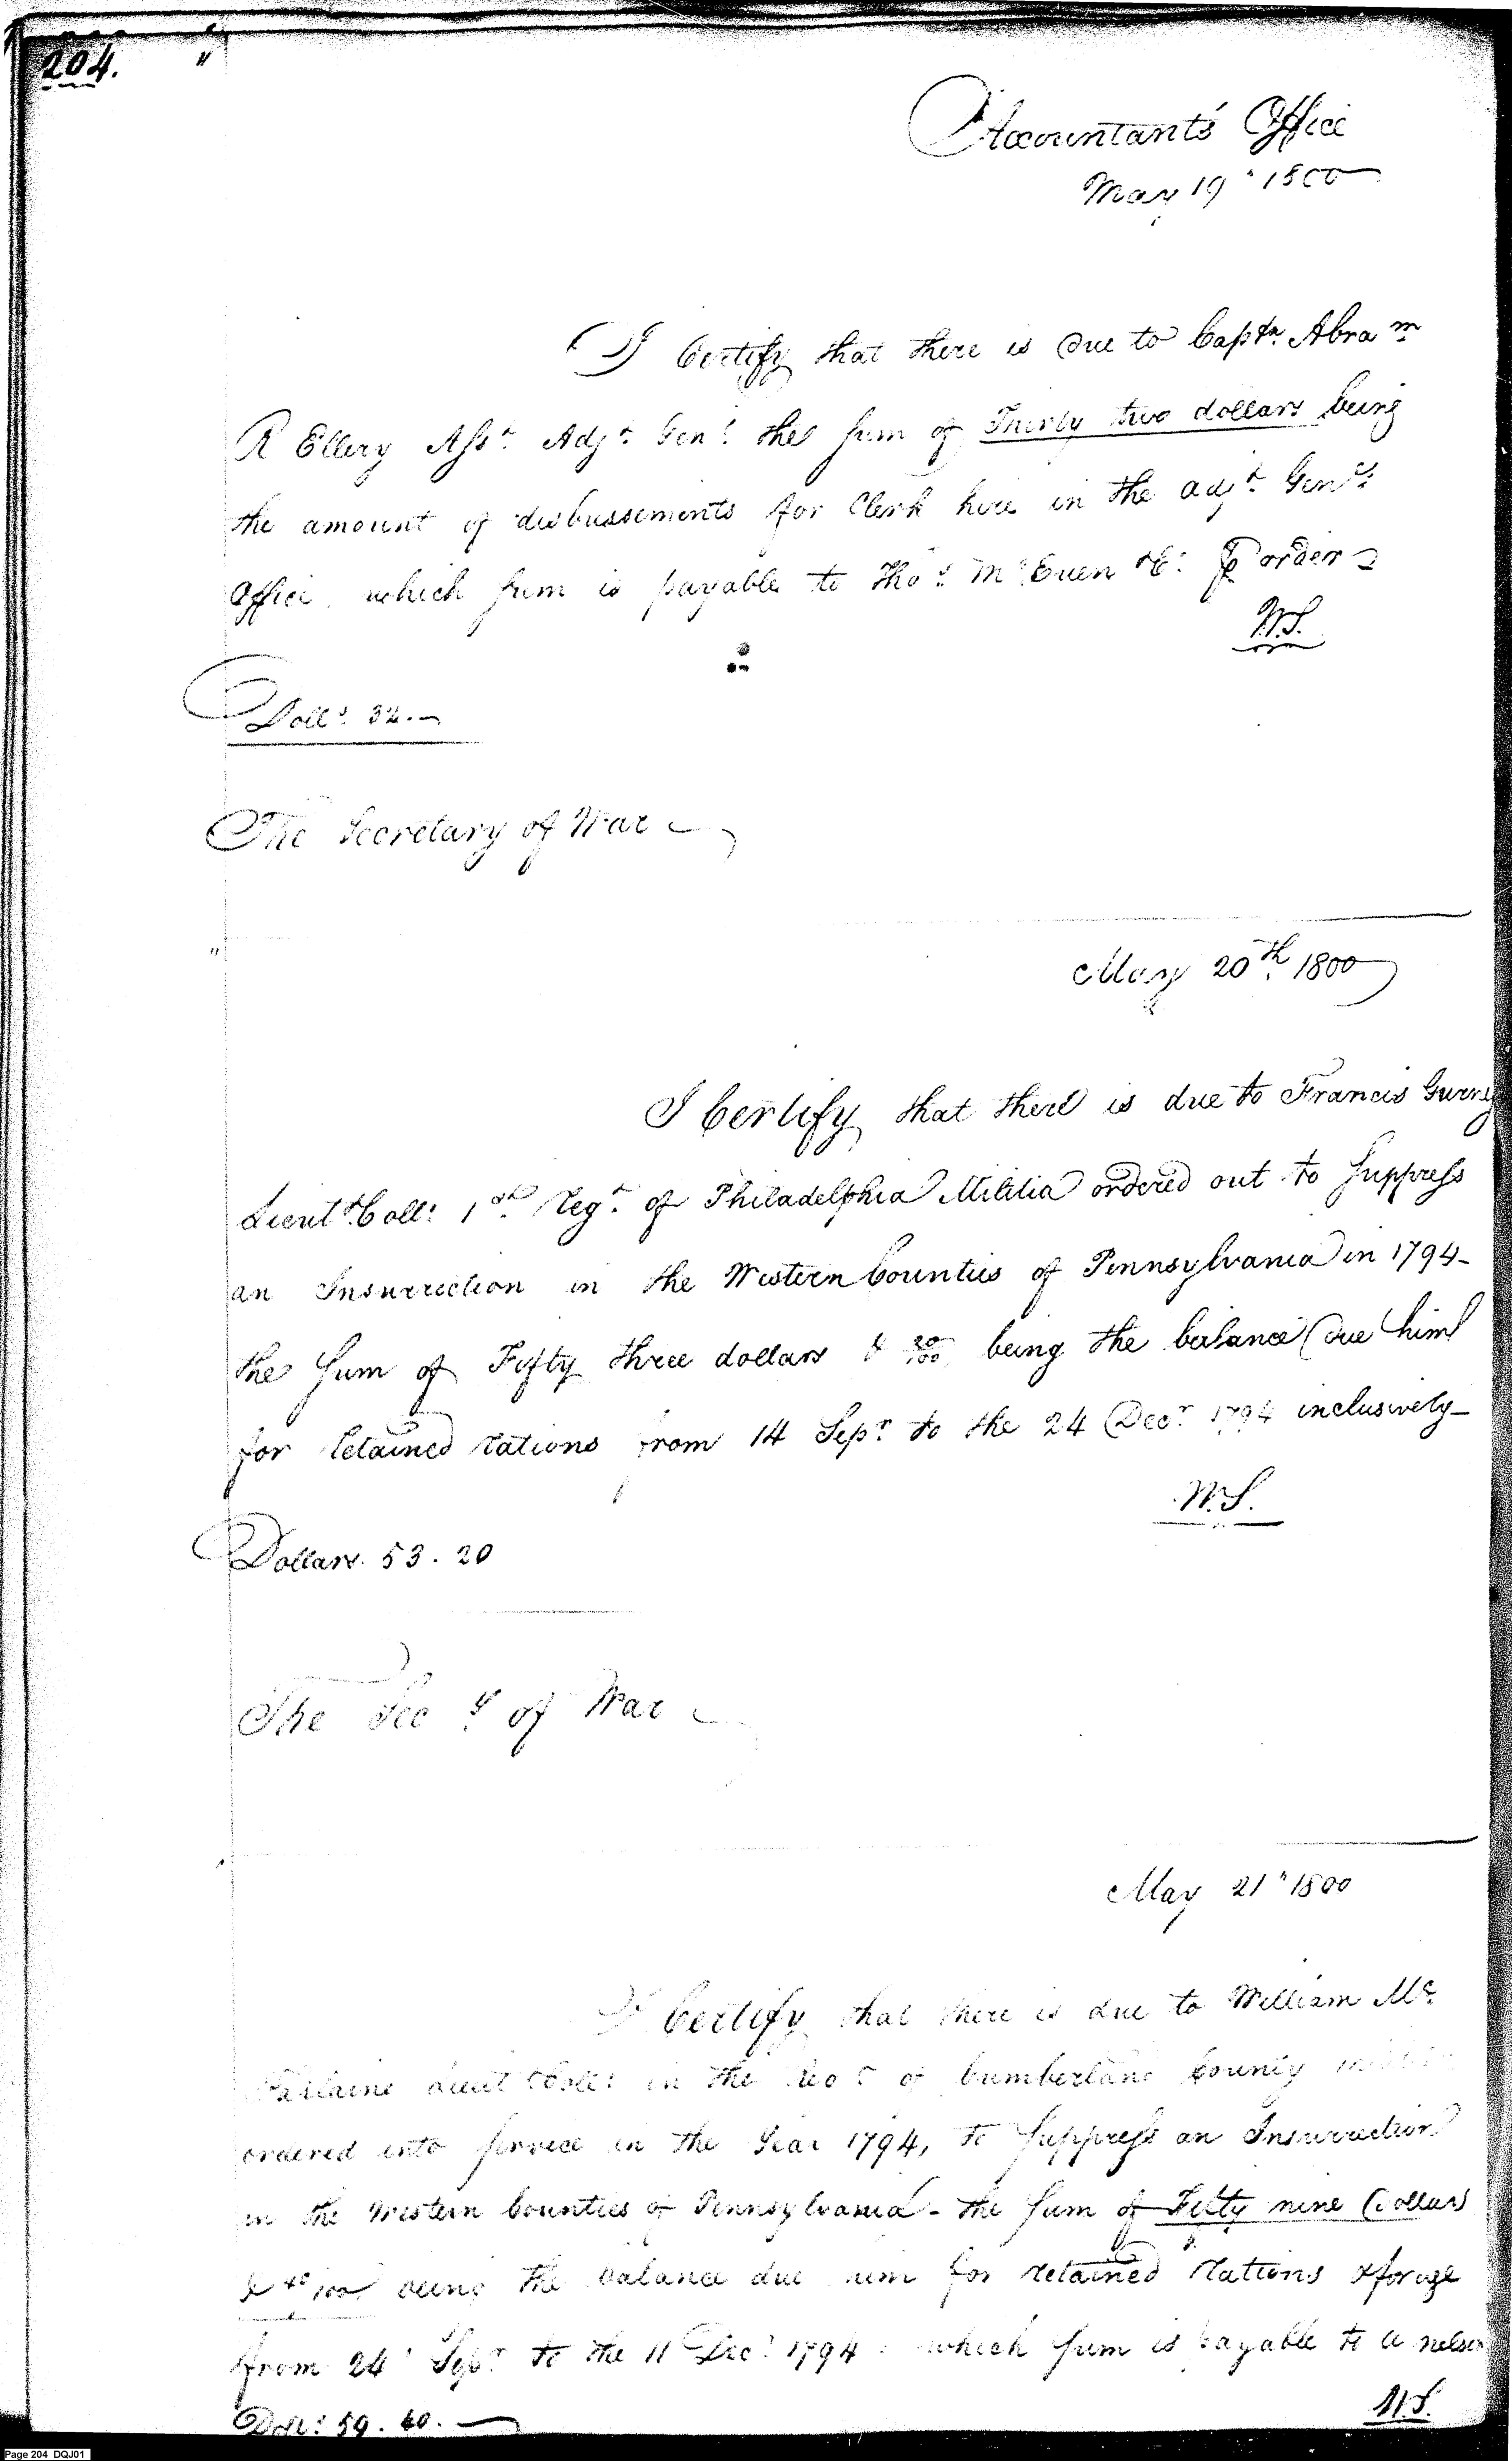 204.
Accountants Office
May 19" 1800
I Certify that there is due to Captn. Abram
R Ellery Asst. Adjt. Genl. the sum of Thirty two dollars being
the amount of disbussements for Clerk hire in the adjt. Genls.
Office, which sum is payable to Thos. McEuen &c: ⅌ order
W.S.
Dolls. 32.—
The Secretary of War
May 20th. 1800
I Certify that there is due to Francis Gurney
Lieut. Coll: 1st. Regt. of Philadelphia Militia ordered out to suppress
an Insurrection in the Western Counties of Pennsylvania in 1794-
the sum of Fifty three dollars & 20/100 being the balance due him
for retained rations from 14 Sepr. to the 24 Decr. 1794 inclusively-
W.S.
Dollars. 53. 20
The Secy. of War
May 21" 1800
I Certify that there is due to William Mc.
Farlaine Lieut Coll: in the Regt. of Cumberland County
ordered into service in the Year 1794, to suppress an Insurrection
in the Western Counties of Pennsylvania - the sum of Fifty nine dollars
& 40/100 being the balance due him for retained rations & forage
from 24 Sepr. to the 11 Decr. 1794 which sum is payable to a nelson
W.S.
Doll: 59. 40.—
Page 204 DQJ01